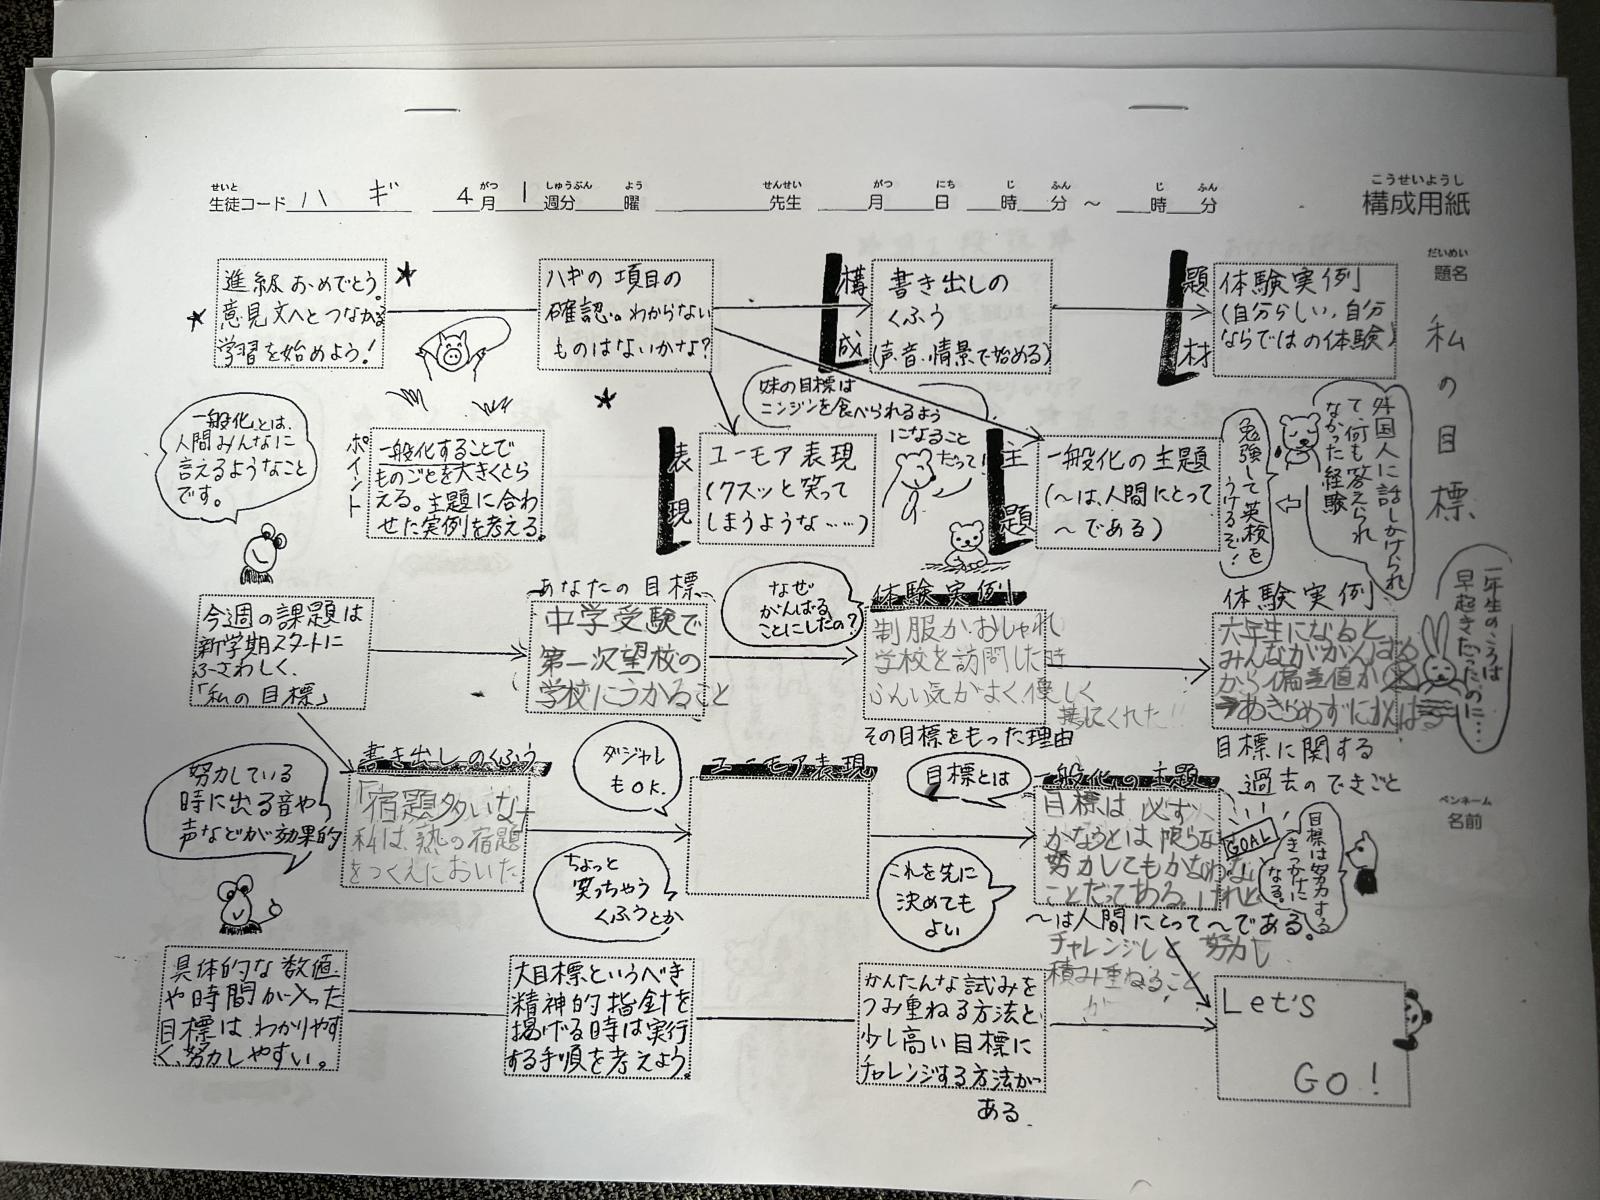 せいと
生徒コード ハギ
がつ しゅうぶん よう
4月1週分 曜
せんせい
先生
がつ にち じ ふん じ ふん
月 日 時 分 ～ 時 分
こうせいようし
構成用紙
だいめい
題名
私の目標
進級おめでとう。
意見文へとつながる
学習を始めよう!
ハギの項目の
確認。わからない
ものはないかな?
構成
書き出しの
くふう
(声、音、情景で始める)
題材
体験実例
(自分らしい、自分
ならではの体験)
妹の目標は
ニンジンを食べられるよう
になること
だって!
外国人に話しかけられ
て、何も答えられ
なかった経験
勉強して英検を
うけるぞ!
一般化とは、
人間みんなに
言えるようなこと
です。
ポイント
一般化することで
ものごとを大きくとら
える。主題に合わ
せた実例を考える。
表現
ユーモア表現
(クスッと笑って
しまうような……)
主題
一般化の主題
(～は、人間にとって
～である)
今週の課題は
新学期スタートに
ふさわしく、
「私の目標」
あなたの目標
中学受験で
第一次望校の
学校にうかること
なぜ
がんばる
ことにしたの?
体験実例
制服がおしゃれ
学校を訪問した時
ふんい気がよく優しく
その目標をもった理由
体験実例
六年生になると
みんながんばる
から偏差値が
あきらめずにがんばる
目標に関する
過去のできごと
一年生のころは
早起きだったのに……
努力している
時に出る音や
声などが効果的
書き出しのくふう
「宿題多いなー
私は、熟の宿題
をつくえにおいた
ダジャレ
もOK.
ちょっと
笑っちゃう
くふうとか
ユーモア表現
目標とは
これを先に
決めても
よい
一般化の主題
目標は必ず
かなうとは限らな
努力してもかなわない
ことだってある。けれど
～は人間にとって～である。
チャレンジし 努力し
積み重ねること
が
GOAL
目標は努力する
きっかけに
なる。
ペンネーム
名前
具体的な数値
や時間が入った
目標は、わかりやす
く、努力しやすい。
大目標というべき
精神的指針を
掲げる時は実行
する手順を考えよう。
かんたんな試みを
つみ重ねる方法と、
少し高い目標に
チャレンジする方法が
ある.
Let's
GO!